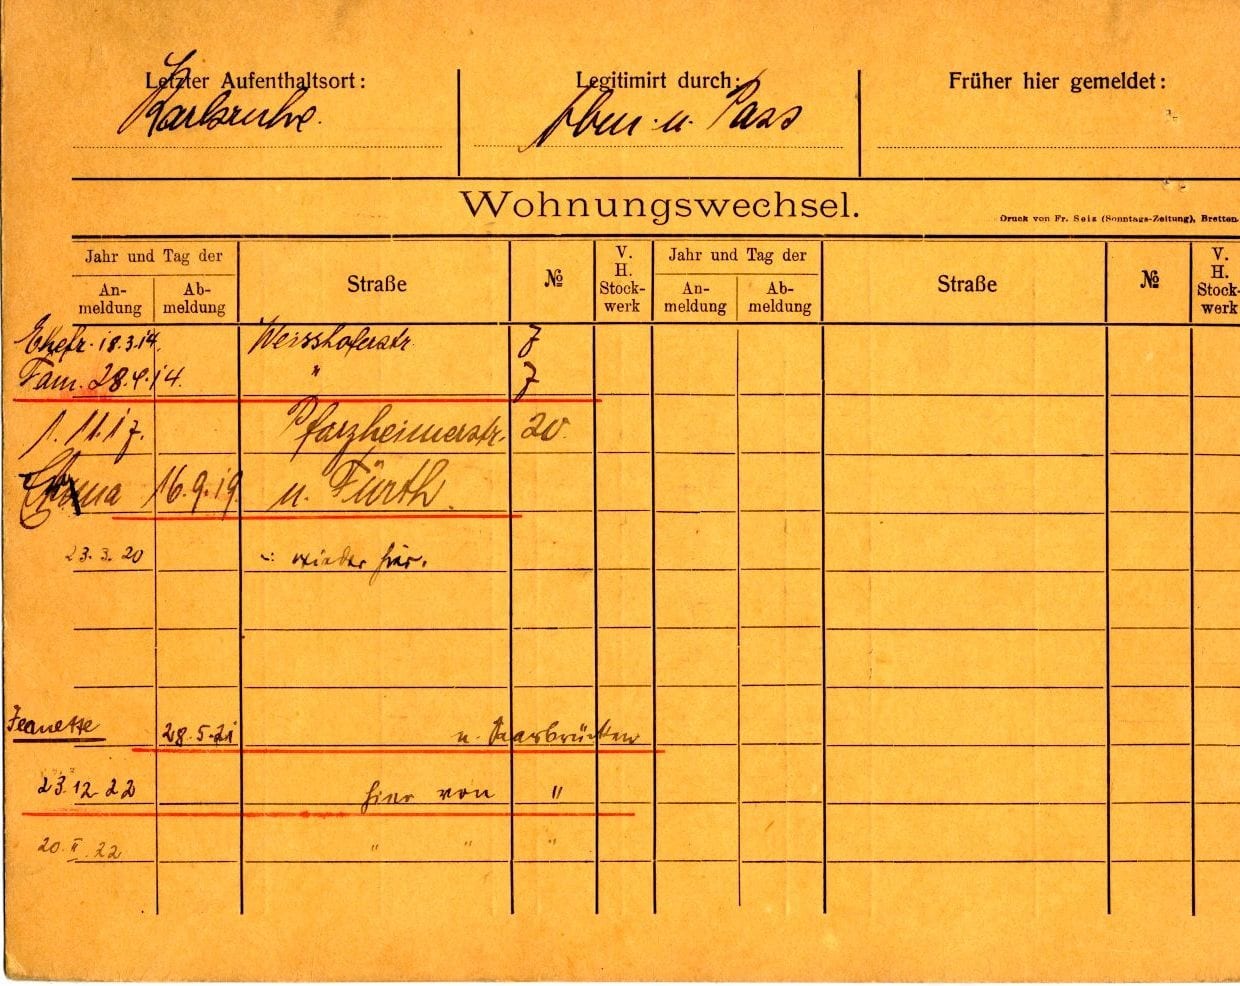 Letzter Aufenthaltsort: Legitimirt durch: Früher hier gemeldet:
Karlsruhe. u. Pass
Wohnungswechsel.
Druck von Fr. Seiz (Sonntags-Zeitung), Bretten.
Jahr und Tag der Straße № V. H. Stock-werk Jahr und Tag der Straße № V. H. Stock-werk
An-meldung Ab-meldung An-meldung Ab-meldung
Ehefr. 18.3.14. Weisshoferstr. 7
Fam. 28.4.14. " 7
1.11.17. Pforzheimerstr. 20.
16.9.19 n. Fürth.
23.3.20 wieder hier.
Jeanette 28.5.21 n. Saarbrücken
23.12.22 hier von "
20.II.22 " " "